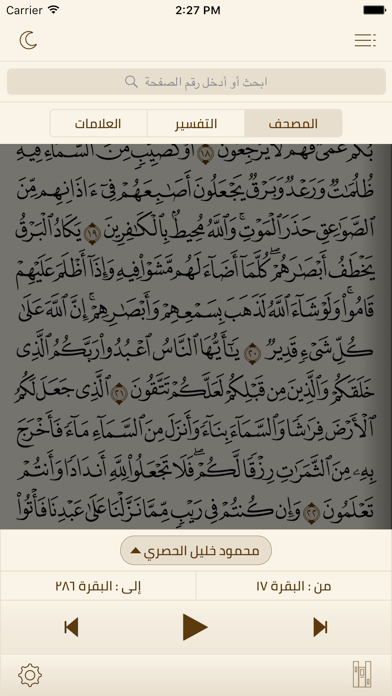 Carrier 2:27 PM
ابحث أو أدخل رقم الصفحة
المصحف التفسير العلامات
بُكْمٌ عُمْىٌ فَهُمْ لَا يَرْجِعُونَ ١٨ أَوْ كَصَيِّبٍ مِّنَ ٱلسَّمَآءِ فِيهِ
ظُلُمَٰتٌ وَرَعْدٌ وَبَرْقٌ يَجْعَلُونَ أَصَٰبِعَهُمْ فِىٓ ءَاذَانِهِم مِّنَ
ٱلصَّوَٰعِقِ حَذَرَ ٱلْمَوْتِ ۚ وَٱللَّهُ مُحِيطٌۢ بِٱلْكَٰفِرِينَ ١٩ يَكَادُ ٱلْبَرْقُ
يَخْطَفُ أَبْصَٰرَهُمْ ۖ كُلَّمَآ أَضَآءَ لَهُم مَّشَوْا۟ فِيهِ وَإِذَآ أَظْلَمَ عَلَيْهِمْ
قَامُوا۟ ۚ وَلَوْ شَآءَ ٱللَّهُ لَذَهَبَ بِسَمْعِهِمْ وَأَبْصَٰرِهِمْ ۚ إِنَّ ٱللَّهَ عَلَىٰ
كُلِّ شَىْءٍ قَدِيرٌ ٢٠ يَٰٓأَيُّهَا ٱلنَّاسُ ٱعْبُدُوا۟ رَبَّكُمُ ٱلَّذِى
خَلَقَكُمْ وَٱلَّذِينَ مِن قَبْلِكُمْ لَعَلَّكُمْ تَتَّقُونَ ٢١ ٱلَّذِى جَعَلَ لَكُمُ
ٱلْأَرْضَ فِرَٰشًا وَٱلسَّمَآءَ بِنَآءً وَأَنزَلَ مِنَ ٱلسَّمَآءِ مَآءً فَأَخْرَجَ
بِهِۦ مِنَ ٱلثَّمَرَٰتِ رِزْقًا لَّكُمْ ۖ فَلَا تَجْعَلُوا۟ لِلَّهِ أَندَادًا وَأَنتُمْ
تَعْلَمُونَ ٢٢ وَإِن كُنتُمْ فِى رَيْبٍ مِّمَّا نَزَّلْنَا عَلَىٰ عَبْدِنَا فَأْتُوا۟
محمود خليل الحصري
من : البقرة ١٧ إلى : البقرة ٢٨٦